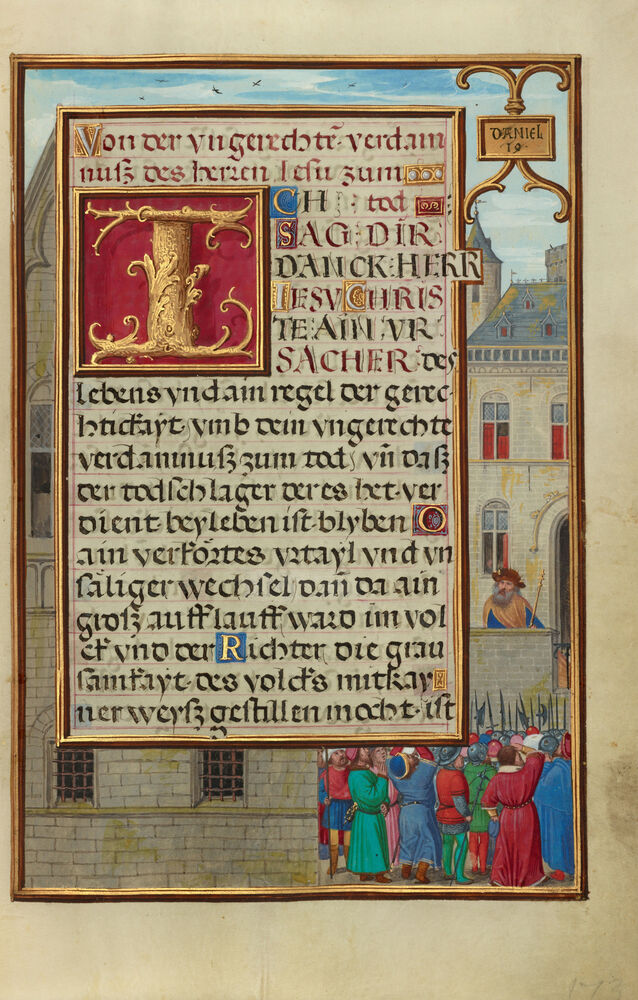 Von der vngerechtē verdam
nusz des herren Iesu zum
ICH : tod :
SAG: DIR
DANCK: HERR
IESV CHRIS
TE: AIN: VR
SACHER des
lebens vnd ain regel der gerec-
htickayt, vmb dein vngerechte
verdamnusz zum tod, vn̄ dasz
der todschlager der es het ver
dient bey leben ist blyben O
ain verkörtes vrtayl vnd vn
säliger wechsel, dan̄ da ain
grosz aufflauff ward im vol
ck vnd der Richter die grau
samkayt des volcks mit kay
ner weysz gestillen mocht ist
DANIEL
19